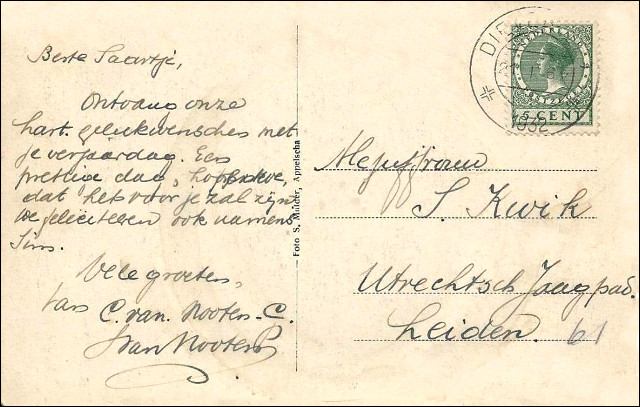 Beste Saartje,
Ontvang onze
hart. gelukwensches met
je verjaardag. Een
prettige dag, hopen we,
dat het voor je zal zijn
We feliciteeren ook namens
Sims.
Vele groeten,
C. van Nooten-C.
van Nooten
Foto S. Mulder, Appelscha
DIE
1932
NEDERLAND
5 CENT
Mejuffrouw
S. Kwik
Utrechtsch Jaagpad.
Leiden. 61